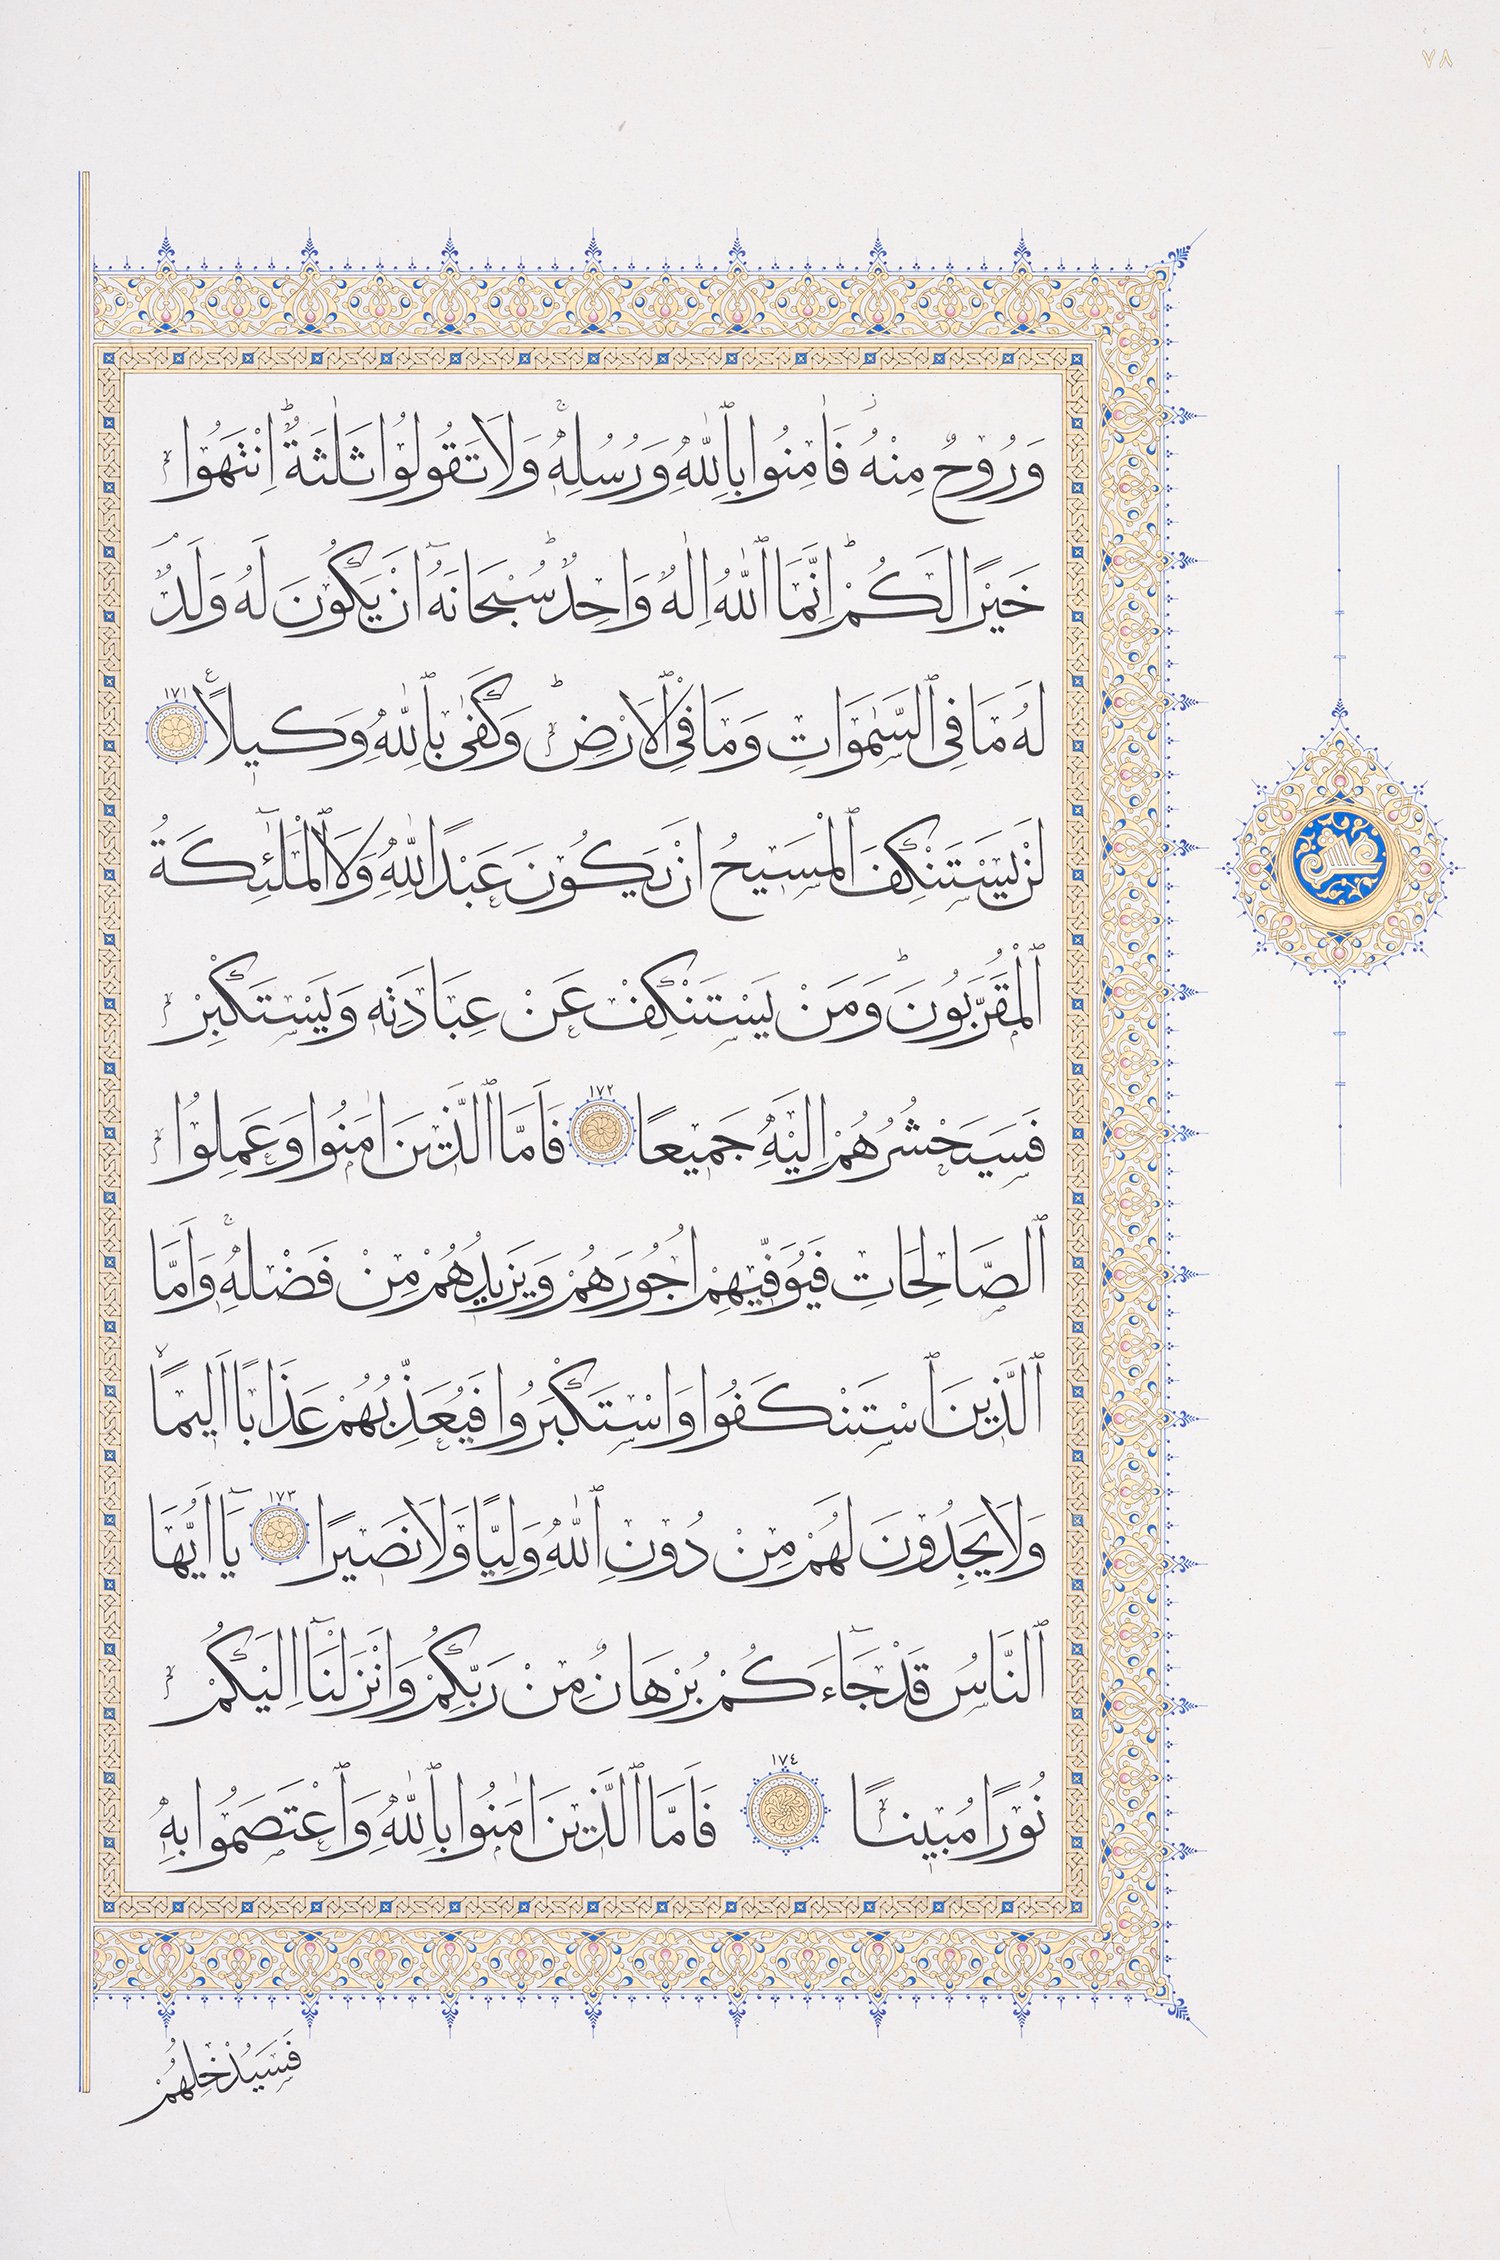 ٧٨
وَرُوحٌ مِنْهُ فَاٰمِنُوا بِاللّٰهِ وَرُسُلِهٖۚ وَلَا تَقُولُوا ثَلٰثَةٌؕ اِنْتَهُوا
خَيْرًا لَكُمْؕ اِنَّمَا اللّٰهُ اِلٰهٌ وَاحِدٌؕ سُبْحَانَهُٓ اَنْ يَكُونَ لَهُ وَلَدٌۢ
لَهُ مَا فِي السَّمٰوَاتِ وَمَا فِي الْاَرْضِؕ وَكَفٰى بِاللّٰهِ وَكِيلًاࣖ ١٧١
لَنْ يَسْتَنْكِفَ الْمَسِيحُ اَنْ يَكُونَ عَبْدًا لِلّٰهِ وَلَا الْمَلٰٓئِكَةُ
الْمُقَرَّبُونَؕ وَمَنْ يَسْتَنْكِفْ عَنْ عِبَادَتِهٖ وَيَسْتَكْبِرْ
فَسَيَحْشُرُهُمْ اِلَيْهِ جَمِيعًا ١٧٢ فَاَمَّا الَّذِينَ اٰمَنُوا وَعَمِلُوا
الصَّالِحَاتِ فَيُوَفِّيهِمْ اُجُورَهُمْ وَيَزِيدُهُمْ مِنْ فَضْلِهٖۚ وَاَمَّا
الَّذِينَ اسْتَنْكَفُوا وَاسْتَكْبَرُوا فَيُعَذِّبُهُمْ عَذَابًا اَلِيمًاۙ
وَلَا يَجِدُونَ لَهُمْ مِنْ دُونِ اللّٰهِ وَلِيًّا وَلَا نَصِيرًا ١٧٣ يَٓا اَيُّهَا
النَّاسُ قَدْ جَٓاءَكُمْ بُرْهَانٌ مِنْ رَبِّكُمْ وَاَنْزَلْنَٓا اِلَيْكُمْ
نُورًا مُبِينًا ١٧٤ فَاَمَّا الَّذِينَ اٰمَنُوا بِاللّٰهِ وَاعْتَصَمُوا بِهٖ
فَسَيُدْخِلُهُمْ